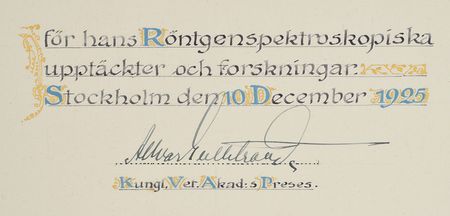 för hans Röntgenspektroskopiska
upptäckter och forskningar.
Stockholm den 10 December 1925
Allvar Gullstrand
Kungl. Vet. Akad:s Preses.